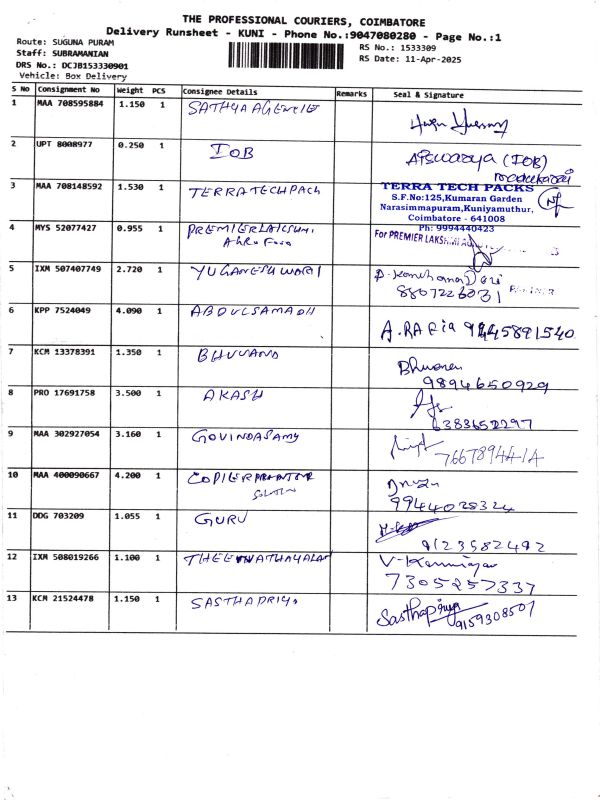 THE PROFESSIONAL COURIERS, COIMBATORE
Delivery Runsheet - KUNI - Phone No.:9047080280 - Page No.:1
Route: SUGUNA PURAM
Staff: SUBRAMANIAN
DRS No.: DCJB153330901
Vehicle: Box Delivery
RS No.: 1533309
RS Date: 11-Apr-2025
S No Consignment No Weight PCS Consignee Details Remarks Seal & Signature
1 MAA 708595884 1.150 1 SATHYA AGENCIE
2 UPT 8008977 0.250 1 IOB (IOB)
3 MAA 708148592 1.530 1 TERRATECHPACK
TERRA TECH PACKS
S.F.No:125,Kumaran Garden
Narasimmapuram,Kuniyamuthur,
Coimbatore - 641008
Ph: 9994440423
4 MYS 52077427 0.955 1 PREMIERLAKSHMI
For PREMIER LAKSHMI
5 IXM 507407749 2.720 1 YUGANESHWARI
8807226031
6 KPP 7524049 4.090 1 ABDULSAMADH A.RAFIA 9445891540
7 KCM 13378391 1.350 1 BHUVANA Bhuvana
9894650929
8 PRO 17691758 3.500 1 AKASH
6383652297
9 MAA 302927054 3.160 1 GOVINDASAMY
10 MAA 400090667 4.200 1
9944028324
11 DDG 703209 1.055 1 GURU
9123582492
12 IXM 508019266 1.100 1 THEENATHAYALAN
7305257337
13 KCM 21524478 1.150 1 SASTHAPRIYA Sasthapriya
9159308507